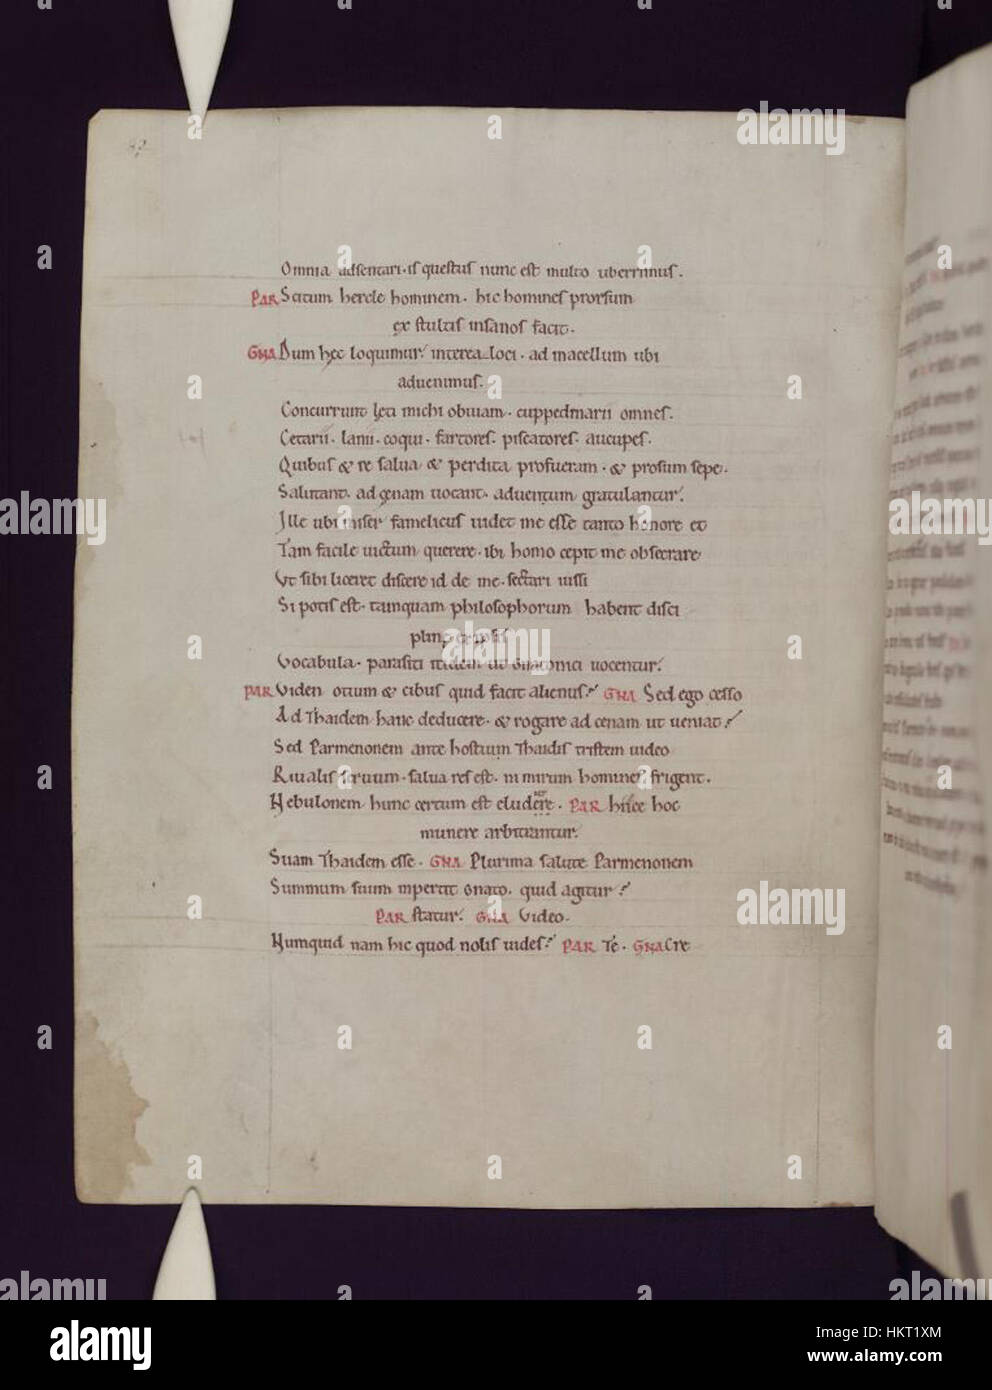 82
Omnia adsentari. is questus nunc est multo uberrimus.
PAR Scitum hercle hominem. hic homines prorsum
ex stultis insanos facit.
GNA Dum hec loquimur. interea loci. ad macellum ubi
aduenimus.
Concurrunt leti michi obuiam. cuppedinarii omnes.
Cetarii. lanii. coqui. fartores. piscatores. aucupes.
Quibus & re salua & perdita profueram. & prosum sepe.
Salutant. ad cenam uocant. aduentum gratulantur.
Ille ubi miser famelicus uidet me esse tanto honore et
Tam facile uictum querere. ibi homo cepit me obsecrare
Ut sibi liceret discere id de me. sectari iussi
Si potis est. tamquam philosophorum habent disci
pline ex ipsis
Vocabula. parasiti itidem ut Gnatonici uocentur.
PAR Viden otium & cibus quid facit alienus? GNA Sed ego cesso
Ad Thaidem hanc deducere. & rogare ad cenam ut ueniat?
Sed Parmenonem ante hostium Thaidis tristem uideo
Riualis seruum. salua res est. ni mirum homines frigent.
Nebulonem hunc certum est eludere. PAR hisce hoc
munere arbitrantur.
Suam Thaidem esse. GNA Plurima salute Parmenonem
Summum suum inpertit Gnato. quid agitur?
PAR statur. GNA Video.
Numquid nam hic quod nolis uides? PAR Te. GNA Cre
alamy
a
Image ID: HKT1XM
www.alamy.com